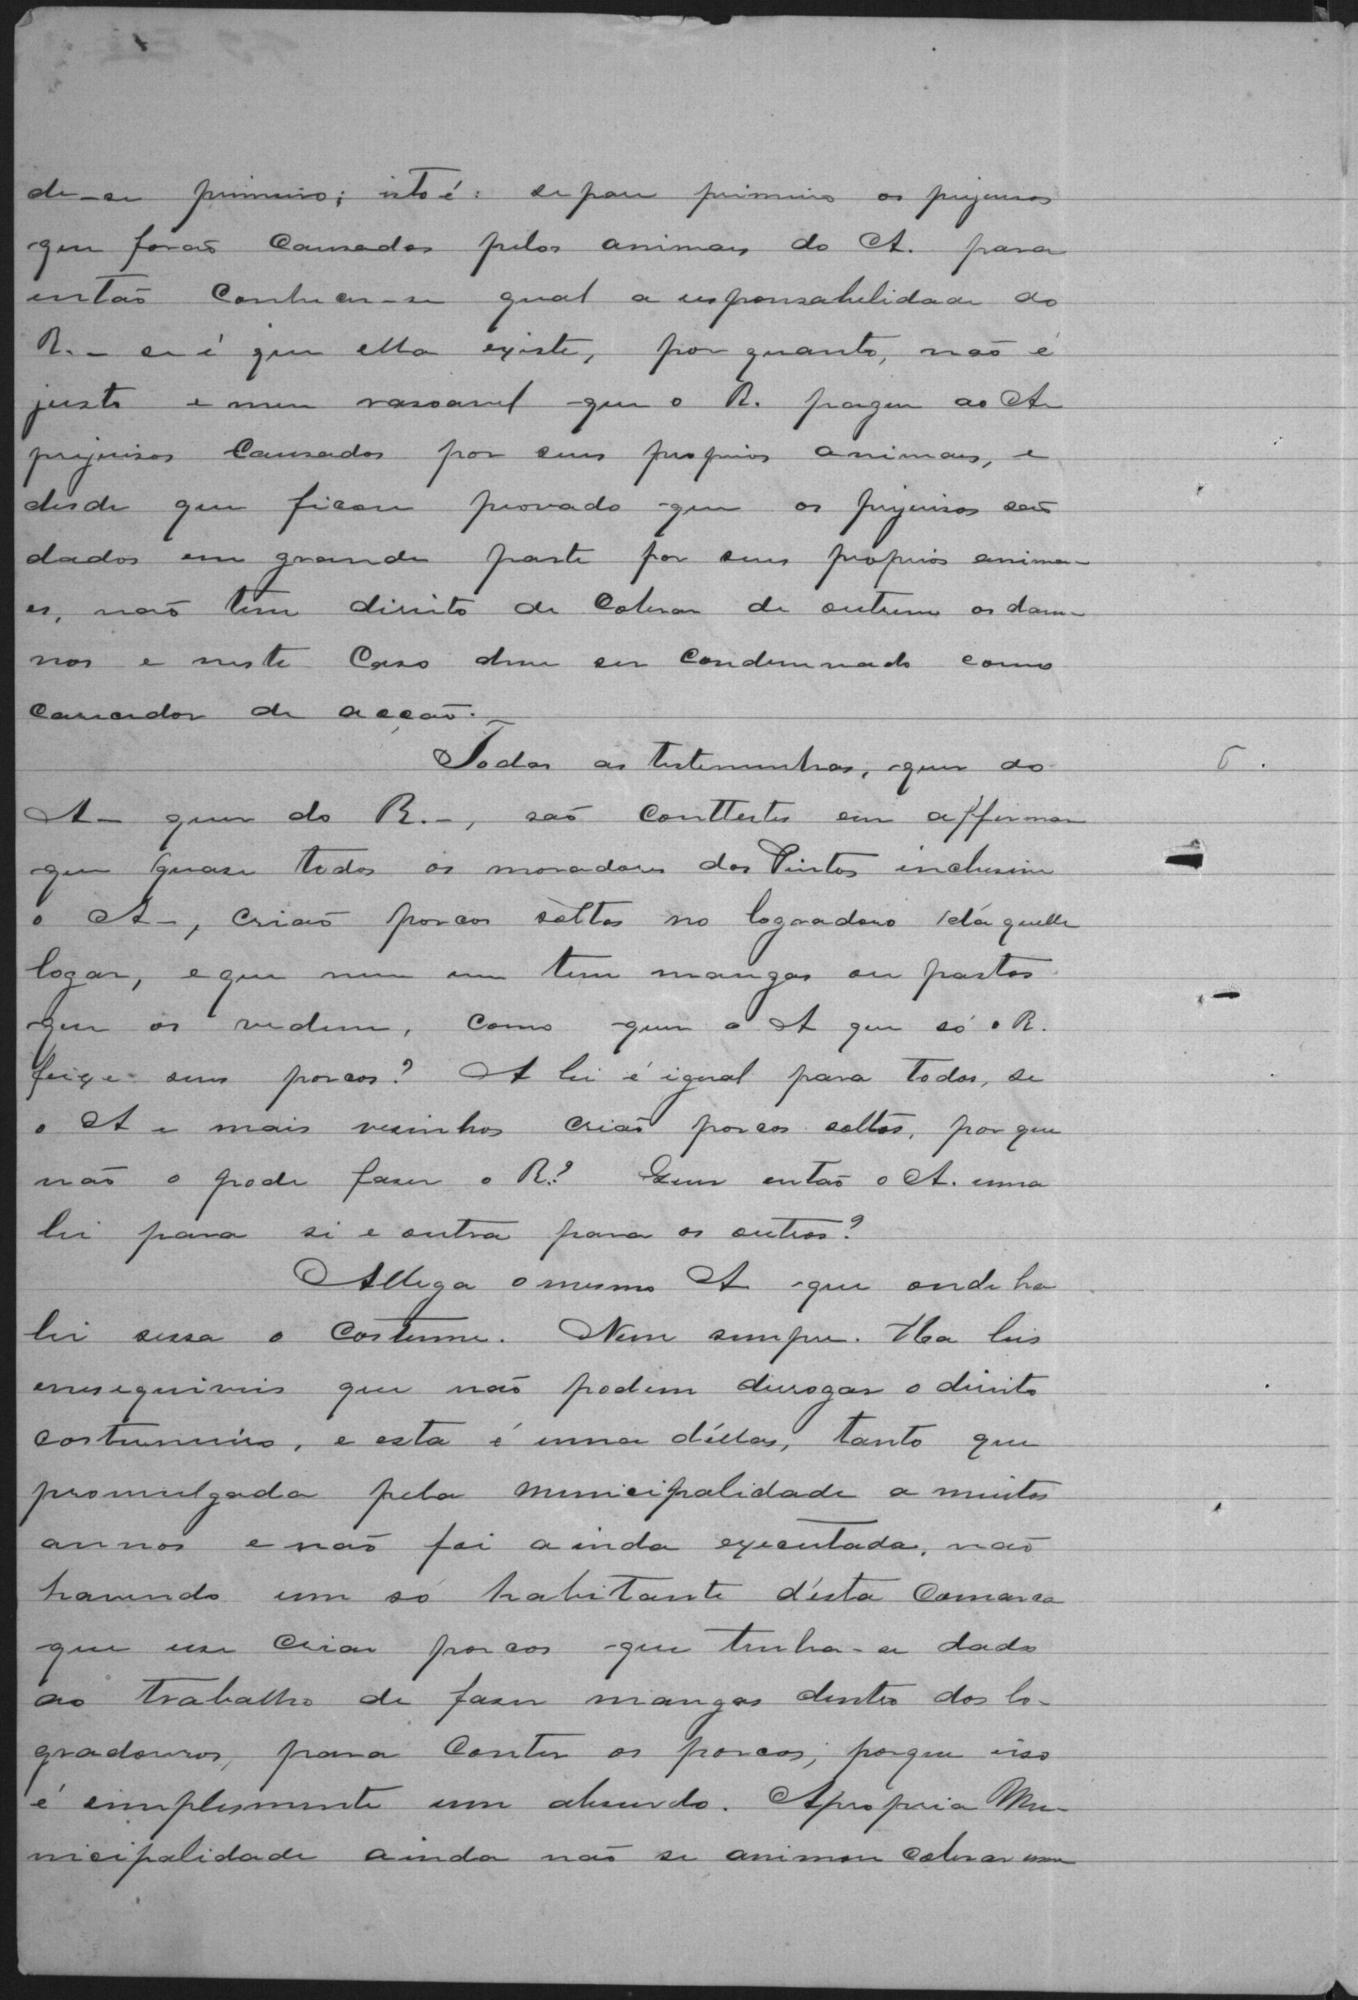 de-se primeiro; isto é: separe primeiro os prejuisos
que forão causados pelos animaes do A. para
então conhecer-se qual a responsabilidade do
R. - se é que ella existe, por quanto, não é
justo e nem rasoavel que o R. pague ao A.
prejuisos causados por seus proprios animaes, e
desde que ficou provado que os prejuisos são
dados em grande parte por seus proprios anima-
es, não tem direito de cobrar de outrem os dam-
nos e neste caso deve ser condemnado como
carecedor de acção.
Todas as testemunhas, quer do
A - quer do R. -, são conttestes em affirmar
que quase todos os moradores dos Pintos inclusive
o A -, crião porcos soltos no logradoro dáquelle
logar, e que nem um tem mangas ou pastos
que os vedem, como quer o A que só o R.
feixe seus porcos? A lei é igual para todos, se
o A e mais vesinhos crião porcos soltos, por que
não o pode faser o R.? Quer então o A. uma
lei para si e outra para os outros?
Allega o mesmo A que onde ha
lei sessa o costume. Nem sempre. Ha leis
enesequiveis que não podem derogar o direito
costumeiro, e esta é uma déllas, tanto que
promulgada pela municipalidade a muitos
annos e não foi ainda executada, não
havendo um só habitante désta comarca
que use criar porcos que tenha-se dado
ao trabalho de faser mangas dentro dos lo-
gradouros, para conter os porcos; porque isso
é simplesmente um absurdo. A propria Mu-
nicipalidade ainda não se animou cobrar uma